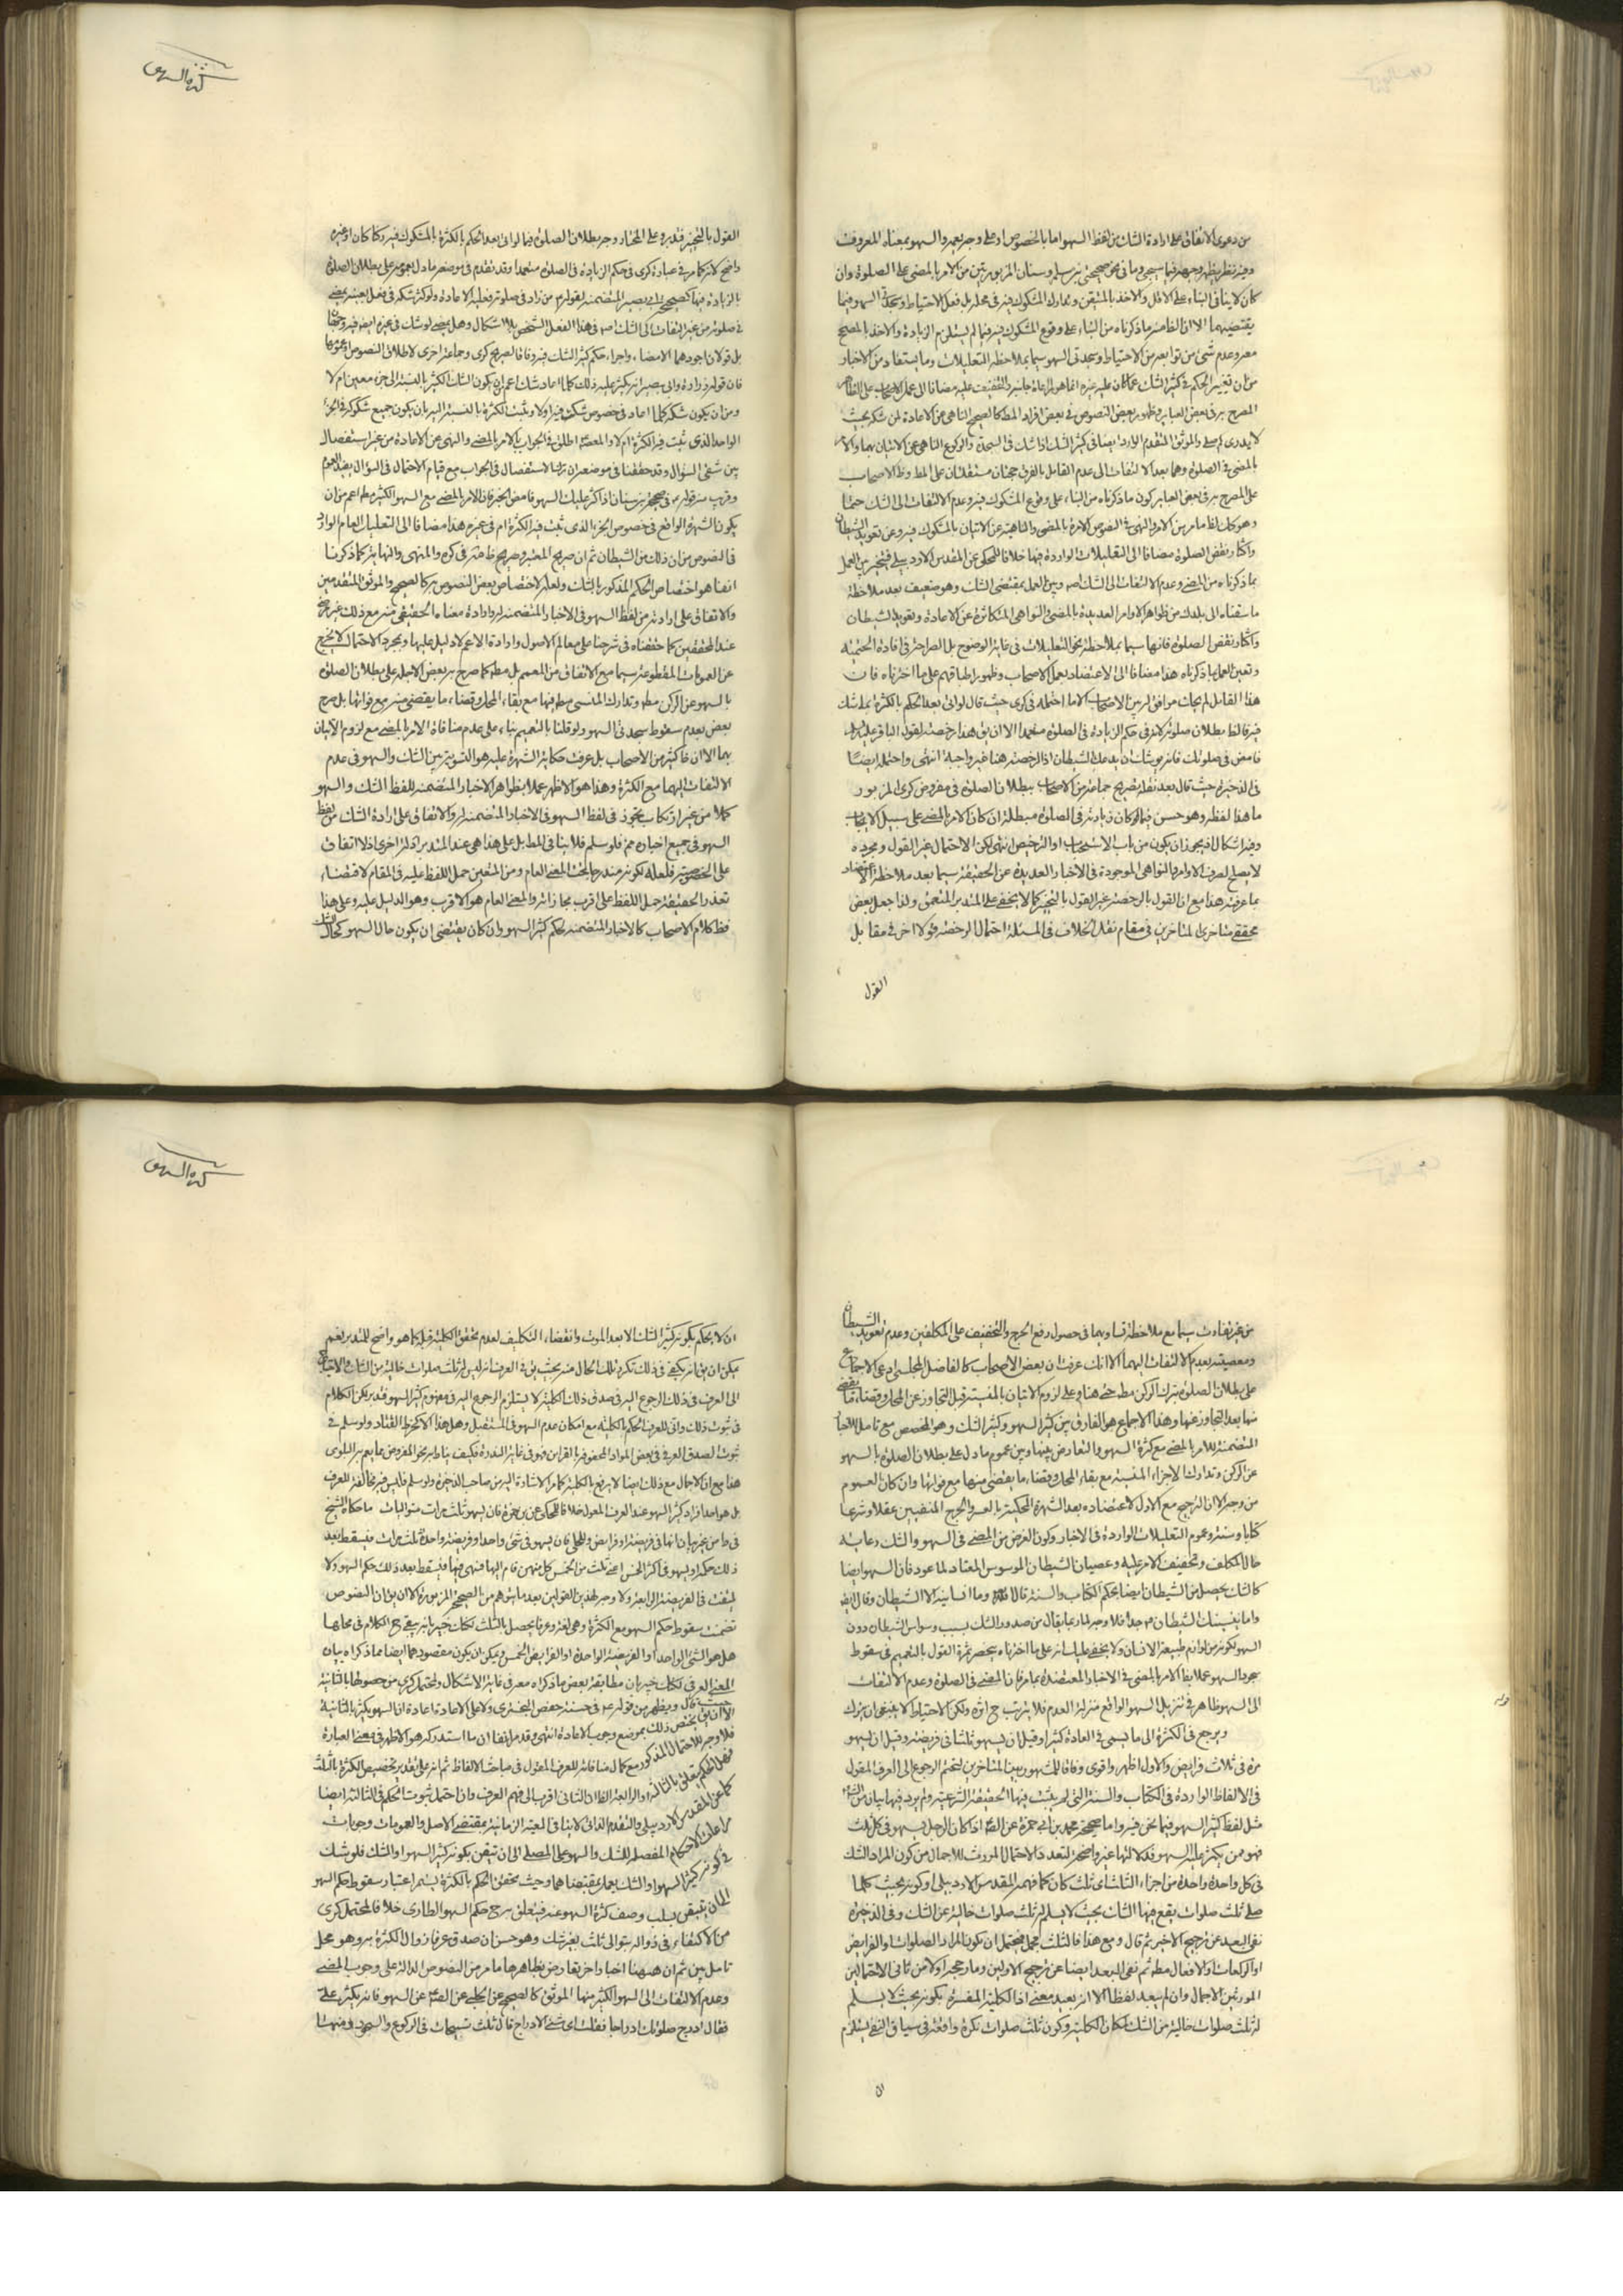 كثرة السهو
من دعوى الاتفاق على ارادة الشك من لفظ السهو اما بالخصوص او على وجه يعمه والسهو بمعناه المعروف
كان لا ينافى البناء على الاقل والاخذ بالمتيقن وتدارك المشكوك فيه فى محله بل فعل الاحتياط وسجدتى السهو فيما
يقتضيهما الا ان الظاهر ما ذكرناه من البناء على وقوع المشكوك فيه فيما لم يستلزم الزيادة والاخذ بالمصحح
معه وعدم شئ من توابعه من الاحتياط وسجدتى السهو سيما بملاحظة التعليلات وما يستفاد من الاخبار
المصرح به فى بعض العباير وظهور بعض النصوص فى بعض افراد المط كالصحيح الناهى عن الاعادة لمن شكه بحيث
لا يدرى كم صلى والموثق المتقدم الوارد ايضا فى كثير الشك اذا شك فى السجدة والركوع الناهى عن الاتيان بهما والامر
بالمضى فى الصلوة وهما بعد الالتفات الى عدم القائل بالفرق حجتان مستقلتان على المط وظ الاصحاب
على المصرح به فى بعض العباير كون ما ذكرناه من البناء على وقوع المشكوك فيه وعدم الالتفات الى الشك حتما
وهو كك لظاهر من الامر والنهى فى النصوص الامرة بالمضى والناهية عن الاتيان بالمشكوك فيه وعن تعويد الشيطان
واكثار نقض الصلوة مضافا الى التعليلات الواردة فيها خلافا للمحكى عن المقدس الاردبيلى فتخير بين العمل
بما ذكرناه من المضى وعدم الالتفات الى الشك اصه وبين العمل بمقتضى الشك وهو ضعيف بعد ملاحظة
ما سقناه الى يلدك من ظواهر الاوامر العديدة بالمضى والنواهى المتكاثرة عن الاعادة وتعويد الشيطان
واكثار نقض الصلوة فانها سيما بملاحظة نحو التعليلات فى غاية الوضوح بل الصراحة فى افادة الحتمية
وتعين العمل بما ذكرناه هذا مضافا الى الاعتضاد بعمل الاصحاب وظهور اطباقهم على ما اخترناه فان
هذا القائل لم يجات موافق له من الاصحاب الا ما احتمله فى كرى حيث قال لو اتى بعد الحكم بالكثرة بما شك
فيه فالظ بطلان صلوته لانه فى حكم الزيادة فى الصلوة متعمدا الا ان يق هذا رخصة لقول الباقر عليه السلم
فامض فى صلوتك فانه يوشك ان يدعك الشيطان اذ الرخصة هنا غير واجبة انتهى واحتمله ايضا
فى الذخيرة حيث قال بعد نقل تصريح جماعة من الاصحاب ببطلان الصلوة فى مفروض كرى المزبور
ما هذا لفظه وهو حسن فيما لو كان زيادته فى الصلوة مبطلة ان كان الامر بالمضى على سبيل الايجاب
وفيه اشكال اذ يجوز ان يكون من باب الاستحباب او الترخيص انتهى لكن الاحتمال غير القول ومجرده
لا يصلح لصرف الاوامر والنواهى الموجودة فى الاخبار العديدة عن الحقيقة سيما بعد ملاحظة الاعتضاد
بما عرفته هذا مع ان القول بالرخصة غير القول بالتخير كما لا يخفى على المتدبر المتعمق ولذا جعل بعض
محققى متاخرى المتاخرين فى مقام نقل الخلاف فى المسئلة احتمال الرخصة قولا اخر فى مقابل
القول
القول بالتخير فتدبر وعلى المختار وجه بطلان الصلوة فيما لو اتى بعد الحكم بالكثرة بالمشكوك فيه ركنا كان او غيره
واضح لانه كما مر فى عبارة كرى فى حكم الزيادة فى الصلوة متعمدا وقد تقدم فى موضعه ما دل بعمومه على بطلان الصلوة
فى صلوته من غير التفات الى الشك اصه فى هذا الفعل الشخصى بلا اشكال وهل يمضى لو شك فى غيره ايضه فيه وجهان
بل قولان اجودهما الامضاء واجراء حكم كثير الشك فيه وفاقا لصريح كرى وجماعة اخرى لاطلاق النصوص او عمومها
الواحد الذى ثبت فيه الكثرة ام لا والمعصوم اطلق فى الجواب بالامر بالمضى والنهى عن الاعادة من غير استفصال
بين شقى السؤال وقد حققنا فى موضعه ان ترك الاستفصال فى الجواب مع قيام الاحتمال فى السؤال يفيد العموم
وقريب منه قوله ع فى صحيحة بن سنان اذا كثر عليك السهو فامض الخبر فان الامر بالمضى مع السهو الكثير مط اعم من ان
يكون السهو الواقع فى خصوص الجزء الذى ثبت فيه الكثرة ام فى غيره هذا مضافا الى التعليل العام الوارد
فى النصوص من ان ذلك من الشيطان ثم ان صريح المعتبر وصريح ظاهر فى كره والمنتهى والنهاية كما ذكرنا
انفا هو اختصاص الحكم المذكور بالشك ولعله لاختصاص بعض النصوص به كالصحيح والموثق المتقدمين
والاتفاق على ارادته من لفظ السهو فى الاخبار المتضمنة له وارادة معناه الحقيقى منه مع ذلك غير مرضى
عند المحققين كما حققناه فى شرحنا على معالم الاصول وارادة الاعم لا دليل عليها وبمجرد الاحتمال لا يخرج
عن العمومات المقطوعة سيما مع الاتفاق من المعمم بل مط كما صرح به بعض الاجلة على بطلان الصلوة
بالسهو عن الركن مط وتدارك المنسى مط فيها مع بقاء المحل وقضاء ما يقضى منه مع فواتها بل صرح
بعض بعدم سقوط سجدتى السهو ولو قلنا بالتعميم بناء على عدم منافاة الامر بالمضى مع لزوم الاتيان
بهما الا ان ظ كثير من الاصحاب بل عرفت حكاية الشهرة عليه هو التسوية بين الشك والسهو فى عدم
الالتفات اليهما مع الكثرة وهذا هو الاظهر عملا بظواهر الاخبار المتضمنة للفظ الشك والسهو
كملا من غير ارتكاب تجوز فى لفظ السهو فى الاخبار المتضمنة له والاتفاق على ارادة الشك من لفظ
السهو فى جميع اخباره مم فلو سلم فلا ينافى المط بل على هذا هى عند المتدبر ادلة اخرى اذ لا اتفاق
على الخصوصية فلعله لكونه مندرجا تحت المعنى العام ومن المتعين حمل اللفظ عليه فى المقام لاقتضاء
تعذر الحقيقة حمل اللفظ على اقرب مجازاته والمعنى العام هو الاقرب وهو الدليل عليه وعلى هذا
فظ كلام الاصحاب كالاخبار المتضمنة لحكم كثير السهو وان كان يقتضى ان يكون حال السهو كحال الشك
كثرة السهو
من غير تفاوت سيما مع ملاحظة تساويهما فى حصول رفع الحرج والتخفيف على المكلفين وعدم تعويد الشيطان
ومعصيته بعدم الالتفات اليهما الا انك عرفت ان بعض الاصحاب كالفاضل المجلسى ادعى الاجماع
على بطلان الصلوة بترك الركن مط حتى هنا وعلى لزوم الاتيان بالمنسية قبل التجاوز عن المحل وقضاء ما يقضى
منها بعد التجاوز عنها وهذا الاجماع هو الفارق بين كثير السهو وكثير الشك وهو المخصص مع تامل
المتضمنة للامر بالمضى مع كثرة السهو والتعارض بينها وبين عموم ما دل على بطلان الصلوة بالسهو
عن الركن وتدارك الاجزاء المنسية مع بقاء المحل وقضاء ما يقضى منها مع فواتها وان كان العموم
من وجه الا ان الترجيح مع الاول لاعتضاده بعد الشهرة المحكية بالعسر والحرج المنفيين عقلا وشرعا
كتابا وسنة وعموم التعليلات الواردة فى الاخبار وكون الغرض من المضى فى السهو والشك رعاية
حال المكلف وتخفيف الامر عليه وعصيان الشيطان الموسوس المعتاد لما عود فان السهو ايضا
كالشك يحصل من الشيطان ايضا بحكم الكتاب والسنة قال الله وما انسانيه الا الشيطان وقال ايضا
واما ينسينك الشيطان فلا وجه لما ربما يقال من صدور الشك بسبب وسواس الشيطان دون
السهو لكونه من لوازم طبيعة الانسان ولا يخفى عليك انه على ما اخترناه ينحصر ثمرة القول بالتعميم فى سقوط
سجود السهو عملا بظ الامر بالمضى فى الاخبار المعتضدة بما مر فان المضى فى الصلوة وعدم الالتفات
الى السهو ظاهر فى تنزيل السهو الواقع منزلة العدم فلا يترتب ح اثره ولكن الاحتياط لا ينبغى ان يترك
ويرجع فى الكثرة الى ما يسمى فى العادة كثيرا وقيل ان يسهو ثلثا فى فريضة وقيل ان يسهو
مرة فى ثلاث فرايض والاول اظهر واقوى وفاقا للمشهور بين المتاخرين لتحتم الرجوع الى العرف المقول
فى الالفاظ الواردة فى الكتاب والسنة التى لم يثبت فيها الحقيقة الشرعية ولم يرد فيها بيان من الشارع
مثل لفظ كثير السهو فيما نحن فيه واما صحيحة محمد بن ابى حمزة عن الصه اذا كان الرجل يسهو فى كل ثلث
فهو ممن يكثر عليه السهو فدلالتها غير واضحة لتعدد الاحتمال المورث للاجمال من كون المراد الشك
فى كل واحدة واحدة من اجزاء الثلث اى ثلث كان كما فهمه المقدس الاردبيلى او كونه بحيث كلما
صلى ثلث صلوات يقع فيها الشك بحيث لا يسلم له ثلث صلوات خالية عن الشك وفى الذخيرة
نفى البعد عن ترجيح الاخير ثم قال ومع هذا فالثلث مجمل فيحتمل ان يكون المراد الصلوات او الفرايض
او الركعات او الافعال مط ثم نفى البعد ايضا عن ترجيح الاولين وما رجحه اولا من ثانى الاحتمالين
المورثين الاجمال وان لم يبعد لفظا الا انه بعيد معنى اذ الكلية المفسرة بكونه بحيث لا يسلم
له ثلث صلوات خالية من الشك لمكان الكلية وكون ثلث صلوات نكرة واقعة فى سياق النفى يستلزم
ان
ان لا يحكم بكونه كثير الشك الا بعد الموت وانقضاء التكليف لعدم تحقق الكلية قبله كما هو واضح للمتدبر نعم
يمكن ان يق انه يكفى فى ذلك تكرر تلك الحال منه بحيث يق فى العرف انه ليس له ثلث صلوات خالية من الشك
الى العرف فى ذلك الرجوع اليه فى صدق ذلك الكلية لا يستلزم الرجوع اليه فى مفهوم كثير السهو فتدبر لكن الكلام
فى ثبوت ذلك وانى للعرف الحكم بالكلية مع امكان عدم السهو فى المستقبل وهل هذا الا كخرط القتاد ولو سلم فى
ثبوت الصدق العرفى فى بعض المواد المحفوف بالقراين فهو فى غاية الندرة فكيف يناط به نحو المفروض مما يعم به البلوى
هذا مع ان الاجمال مع ذلك ايضا لا يرتفع بالكلية كما مر الاشارة اليه من صاحب الذخيرة ولو سلم فليس فيه مخالفة للعرف
بل هو احد افراد كثير السهو عند العرف المعول خلافا للمحكى عن بن حمزة فان يسهو ثلث مرات متواليات ما حكاه الشيخ
ذلك حكمه او يسهو فى اكثر الخمس اعنى ثلث من الخمس كل منهن قام اليها فنسى فيها فيسقط بعد ذلك حكم السهو ولا
يلتفت فى الفريضة الرابعة ولا وجه لهذين القولين بعد ما يتوهم من الصحيح المزبورة الا ان يق ان النصوص
تضمنت سقوط حكم السهو مع الكثرة وهى لغة وعرفا يحصل بالثلث لكنك خبير بانه يبقى ح الكلام فى محلها
هل هو الشئ الواحد او الفريضة الواحدة او الفرايض الخمس ويمكن ان يكون مقصودهما ايضا مما ذكراه بيان
المعنى العرفى لكنك خبير بان مطابقة بعض ما ذكراه معه فى غاية الاشكال ولمحتمل كرى من حصولها بالثانية
حيث قال ويظهر من قوله ع فى حسنة حفص البخترى ولا على الاعادة اعادة ان السهو يكثر بالثانية
الا ان يق يختص ذلك بموضع وجوب الاعادة انتهى وقد مر انفا ان ما استدركه هو الاظهر فى معنى العبارة
فلا وجه للاحتمال المذكور مع كمال منافاته للعرف المقبول فى مباحث الالفاظ ثم انه على تقدير تخصيص الكثرة بالثلث
فهل الحكم يتعلق بالثالثة او الرابعة الظ ان الثانى اقرب الى فهم العرف وان احتمل ثبوت الحكم فى الثالثة ايضا
كما عن المقدس الاردبيلى والتقدم الذاتى لا ينافى المعية الزمانية بمقتضى الاصل والعمومات وجوبات
مراعات الاحكام المفصلة للشك والسهو على المصلى الى ان تيقن بكونه كثير السهو او الشك فلو شك
فى كونه كثير السهو او الشك يعمل بمقتضاهما وحيث يتحقق الحكم بالكثرة يستمر اعتبار سقوط حكم السهو
الى ان يتيقن بسلب وصف كثرة السهو عنه فيتعلق به ح حكم السهو الطارى خلافا لمحتمل كرى
من الاكتفاء فى زواله بتوالى ثلث بغير شك وهو حسن ان صدق عرفا زوال الكثرة به وهو محل
تامل بين ثم ان هيهنا اخبارا اخر يعارض بظاهرها ما مر من النصوص الدالة على وجوب المضى
وعدم الالتفات الى السهو الكثير منها الموثق كالصحيح عن الحلبى عن الصه عن السهو فانه يكثر على
فقال ادرج صلوتك ادراجا فقلت اى شئ الادراج قال ثلث تسبيحات فى الركوع والسجود ومنها